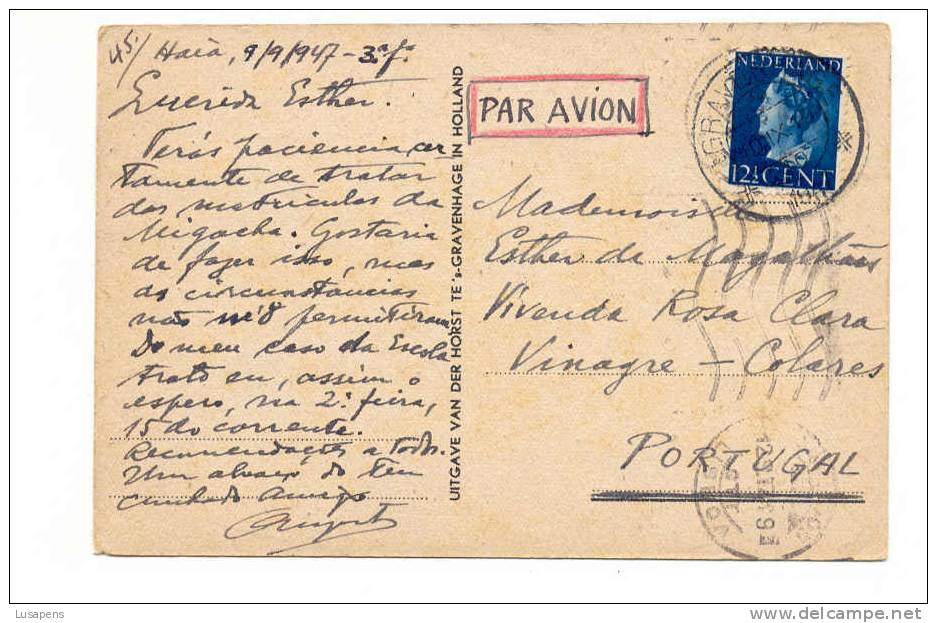 45/ Haia, 9/9/947 - 3ª fª
Querida Esther.
Terás paciencia cer
tamente de tratar
das matriculas da
Migacha. Gostaria
de fazer isso, mas
as circunstancias
não m'o permitiram.
Do meu caso da Escola
trato eu, assim o
espero, na 2ª feira,
15 do corrente.
Recomendações a todos.
Um abraço do teu
cunhado amigo
UITGAVE VAN DER HORST TE 's-GRAVENHAGE IN HOLLAND
PAR AVION
NEDERLAND
12½ CENT
Mademoiselle
Esther de Magalhães
Vivenda Rosa Clara
Vinagre - Colares
PORTUGAL
Lusapens
www.delcampe.net